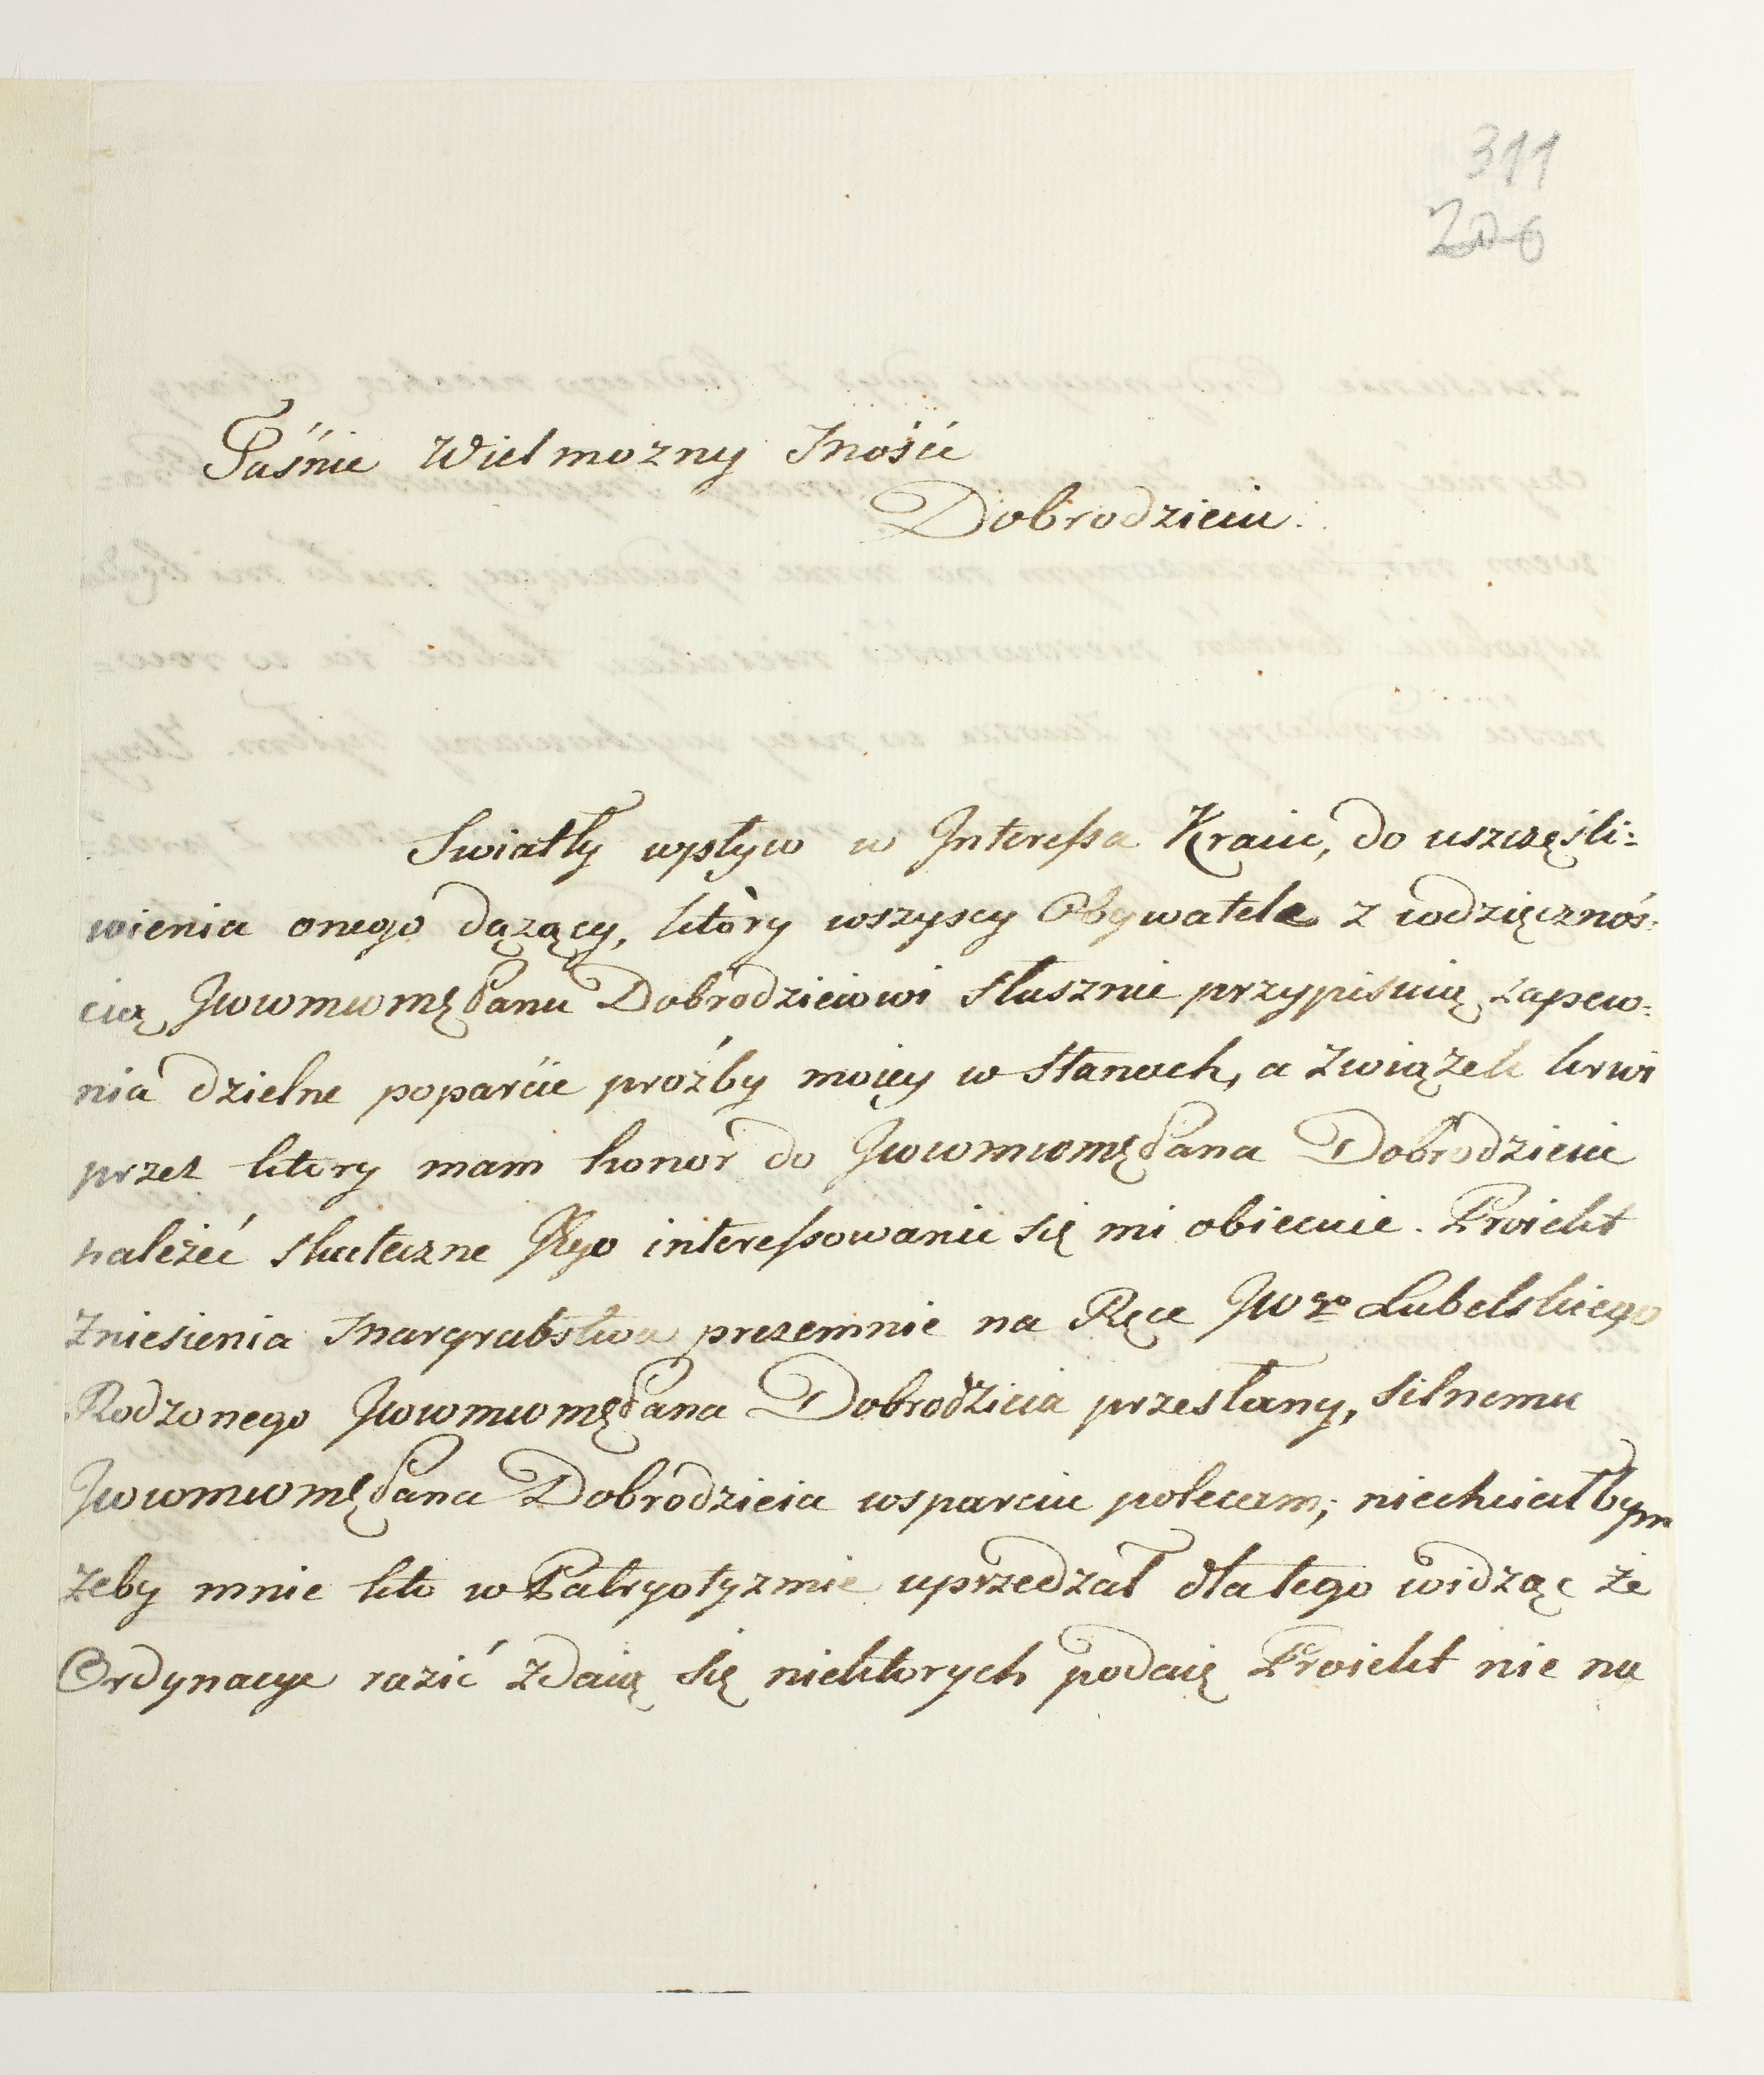 311
206
Jaśnie Wielmozny Mośći
Dobrodzieiu.
Swiatły wpływ w Interessa Kraiu, do uszczęśli:
wienia onego dązący, który wszyscy Obywatele z wdzięcznoś:
cią JwwmwmęPanu Dobrodzieiowi słusznie przypisuią zapew:
nia dzielne poparcie proźby moiey w Stanach, a związek krwi
przez ktory mam honor do JwwmwmęPana Dobrodzieia
należeć skuteczne Jego interessowanie się mi obiecuie. Proiekt
Zniesienia Margrabstwa przezemnie na Ręce Jwgo Lubelskiego
Rodzonego JwwmwmęPana Dobrodzieia przesłany, silnemu
JwwmwmęPana Dobrodzieia wsparciu polecam; niechciałbym
żeby mnie kto w Patryotyzmie uprzedzał dla tego widząc że
Ordynacye razić zdaią się niektorych podaię Proiekt nie na